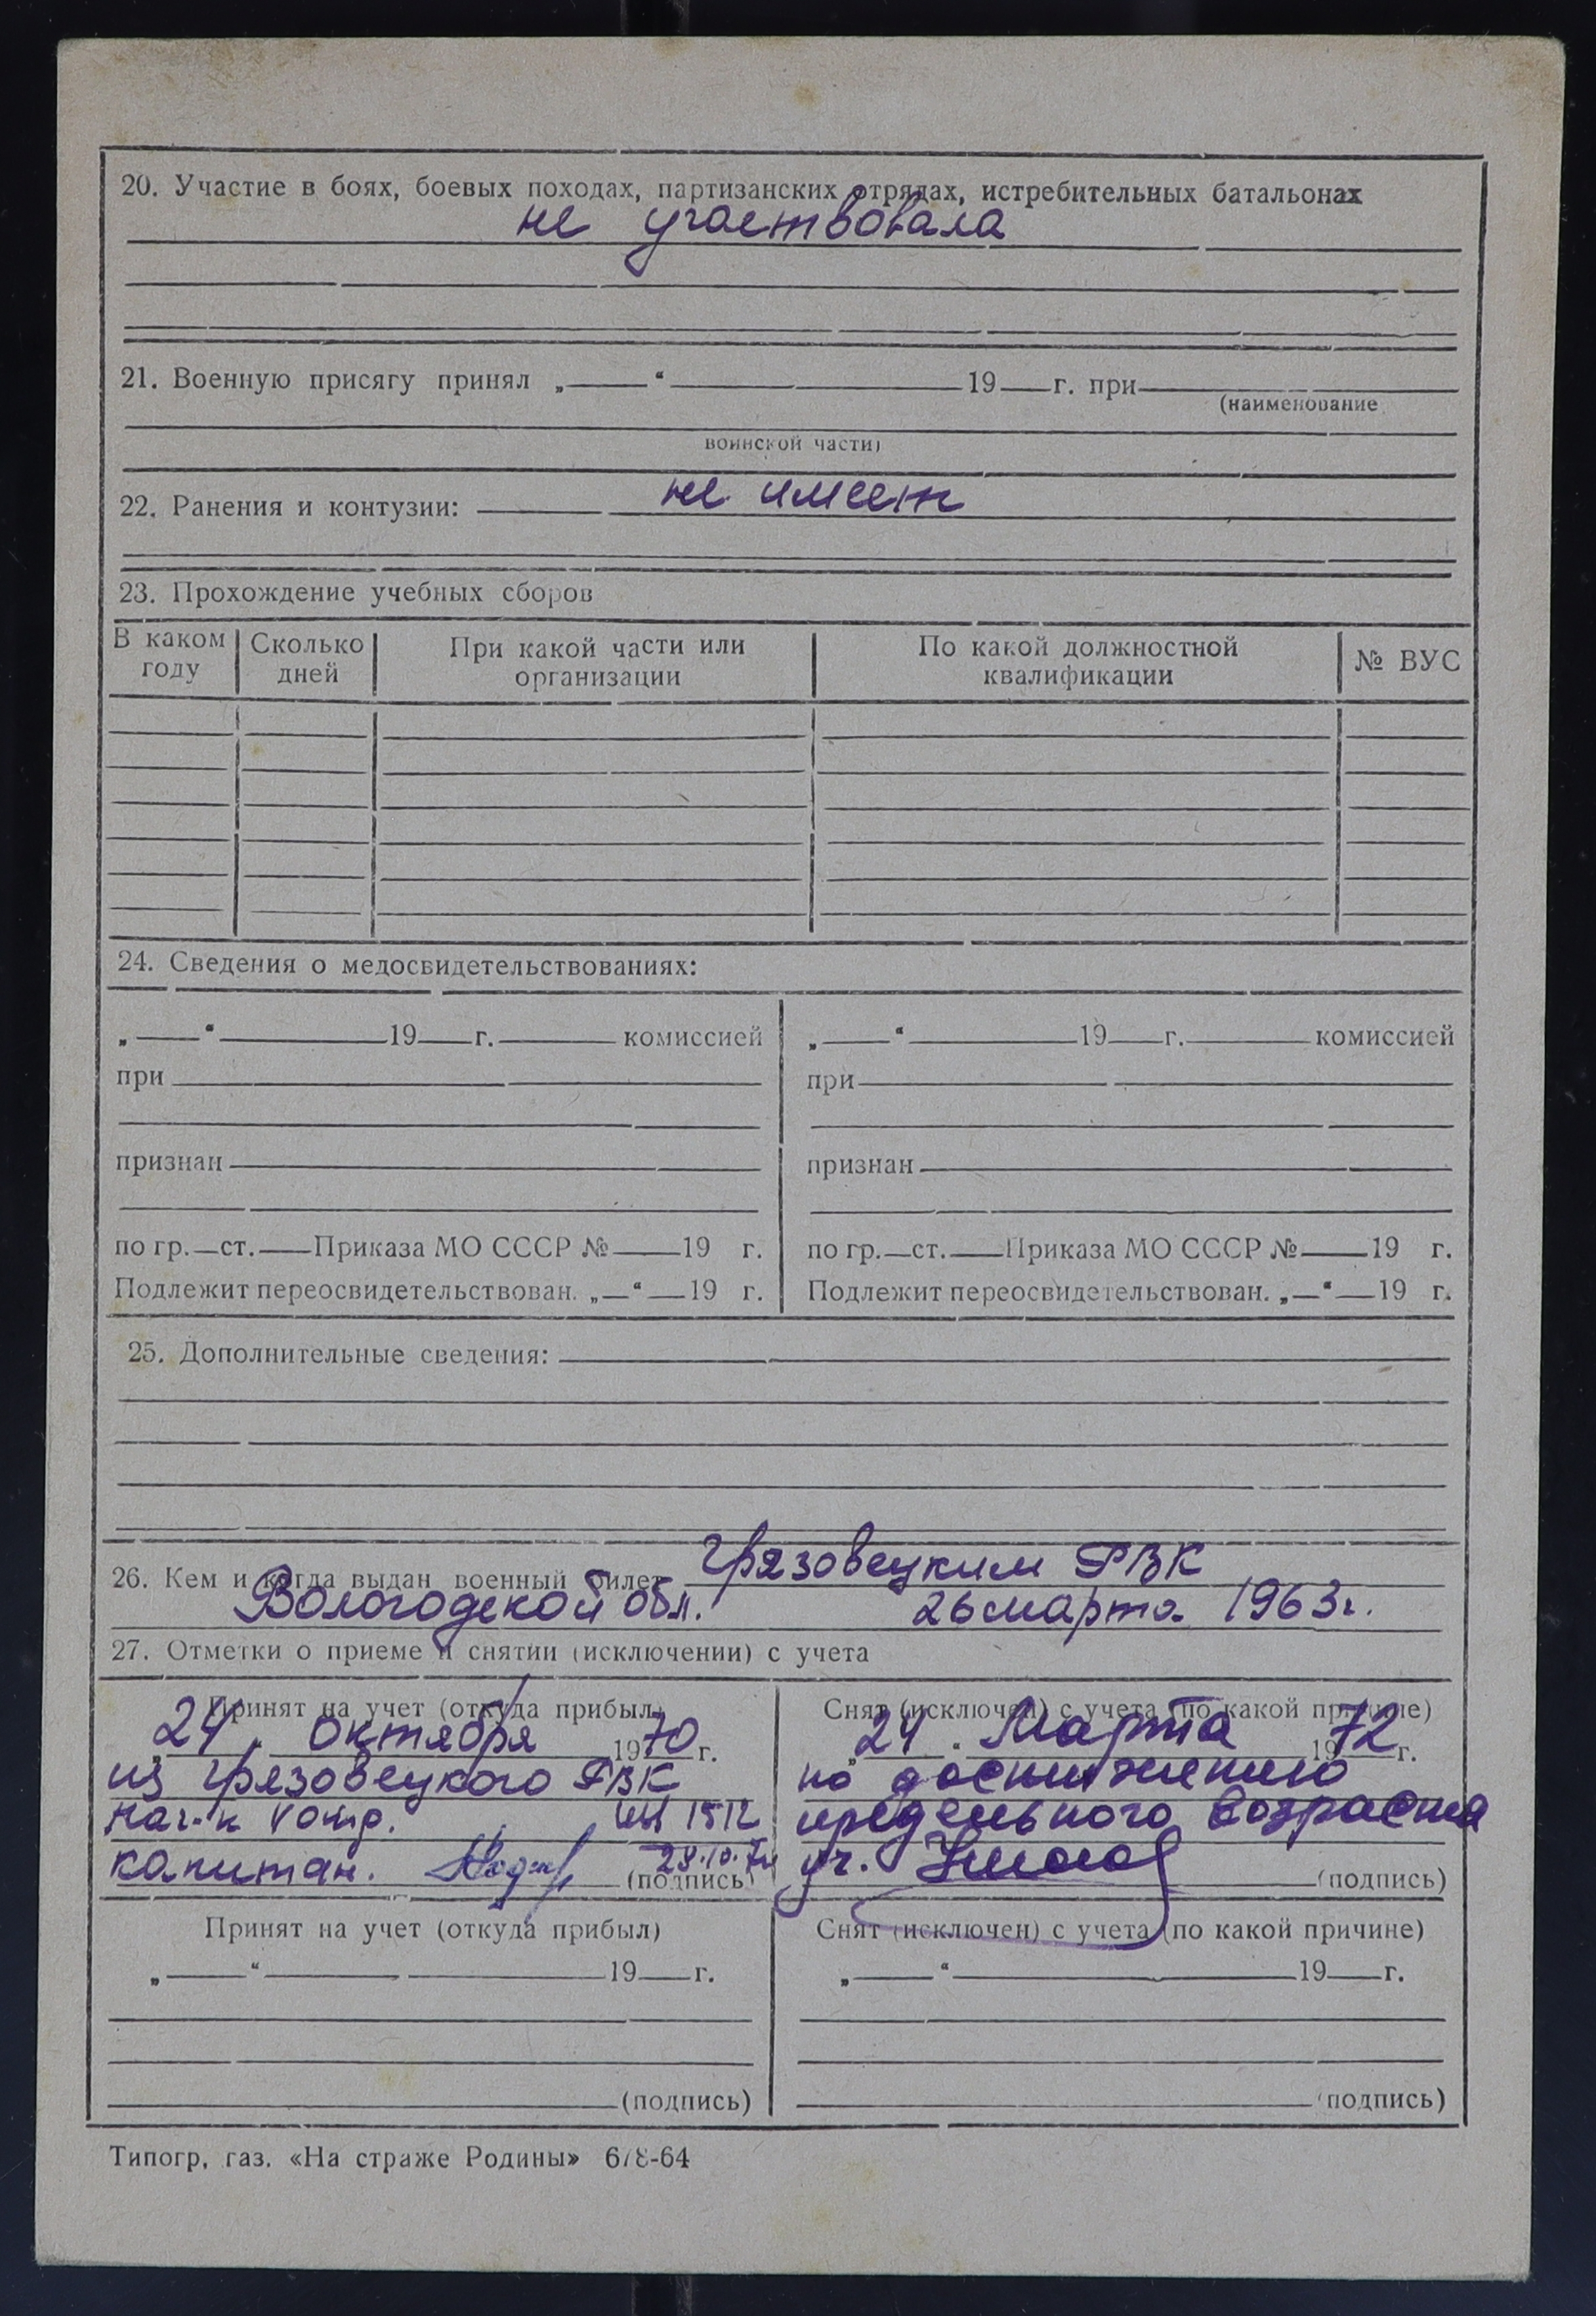 20. Участие в боях, боевых походах, партизанских отрядах, истребительных батальонах
не участвовала
21. Военную присягу принял „ “ 19 г. при
(наименование
воинской части)
22. Ранения и контузии: не имеет
23. Прохождение учебных сборов
В каком году Сколько дней При какой части или организации По какой должностной квалификации № ВУС
24. Сведения о медосвидетельствованиях:
„ “ 19 г. комиссией
при
признан
по гр. ст. Приказа МО СССР № 19 г.
Подлежит переосвидетельствован. „ “ 19 г.
„ “ 19 г. комиссией
при
признан
по гр. ст. Приказа МО СССР № 19 г.
Подлежит переосвидетельствован. „ “ 19 г.
25. Дополнительные сведения:
26. Кем и когда выдан военный билет Грязовецким РВК
Вологодской обл. 26 марта 1963г.
27. Отметки о приеме и снятии (исключении) с учета
Принят на учет (откуда прибыл)
„24“ октября 1970 г.
из Грязовецкого РВК
нач-к V отд. 1512
капитан. 28.10.70 (подпись)
Снят (исключен) с учета (по какой причине)
„24“ Марта 1972 г.
по достижению
предельного возраста
(подпись)
Принят на учет (откуда прибыл)
„ “ 19 г.
(подпись)
Снят (исключен) с учета (по какой причине)
„ “ 19 г.
(подпись)
Типогр, газ. «На страже Родины» 678-64